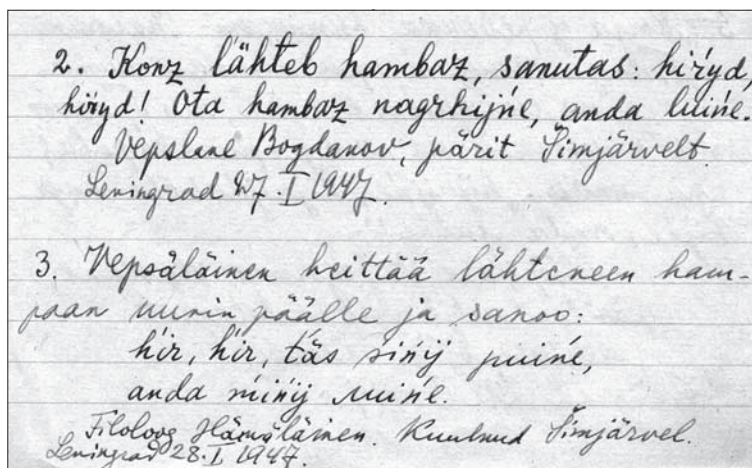 2. Konz lähteb hambaz, sanutas: hiŕyd,
höiyd! Ota hambaz nagrhijńe, anda luińe.
Vepslane Bogdanov, pärit Šimjärvelt.
Leningrad 27. I 1947.
3. Vepsäläinen heittää lähteneen ham-
paan uunin päälle ja sanoo:
hir, hir, täs sińij puińe,
anda mińij luińe.
Filoloog Hämäläinen. Kuulnud Šimjärvel.
Leningrad 28. I 1947.